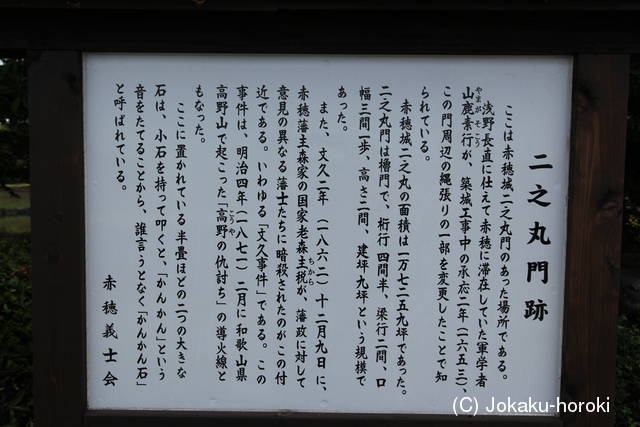 二之丸門跡
ここは赤穂城二之丸門のあった場所である。
浅野長直に仕えて赤穂に滞在していた軍学者
山鹿素行が、築城工事中の承応二年（一六五三）、
やまがそこう
この門周辺の縄張りの一部を変更したことで知
られている。
赤穂城二之丸の面積は一万七二五九坪であった。
二之丸門は櫓門で、桁行四間半、梁行二間、口
幅三間一歩、高さ二間、建坪九坪という規模で
あった。
また、文久二年（一八六二）十二月九日に、
赤穂藩主森家の国家老森主税が、藩政に対して
ちから
意見の異なる藩士たちに暗殺されたのがこの付
近である。いわゆる「文久事件」である。この
事件は、明治四年（一八七一）二月に和歌山県
高野山で起こった「高野の仇討ち」の導火線と
こうや
もなった。
ここに置かれている半畳ほどの二つの大きな
石は、小石を持って叩くと、「かんかん」という
音をたてることから、誰言うとなく「かんかん石」
と呼ばれている。
赤穂義士会
(C) Jokaku-horoki